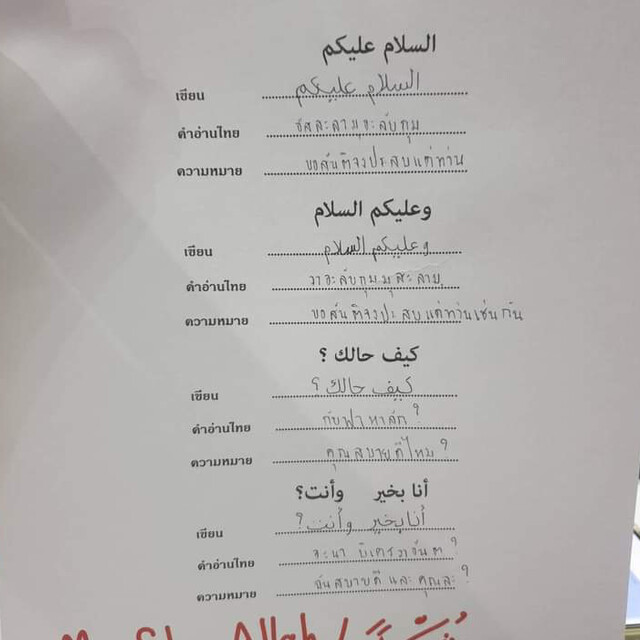 السلام عليكم
เขียน السلام عليكم
คำอ่านไทย อัสสะลามุอะลัยกุม
ความหมาย ขอสันติจงประสบแด่ท่าน
وعليكم السلام
เขียน وعليكم السلام
คำอ่านไทย วาอะลัยกุมมุสะลาม
ความหมาย ขอสันติจงประสบแด่ท่านเช่นกัน
كيف حالك ؟
เขียน كيف حالك ؟
คำอ่านไทย กัยฟาหาลัก?
ความหมาย คุณสบายดีไหม?
أنا بخير وأنت؟
เขียน أنا بخير وأنت؟
คำอ่านไทย อะนา
ความหมาย ฉันสบายดี และ คุณละ?
Allah